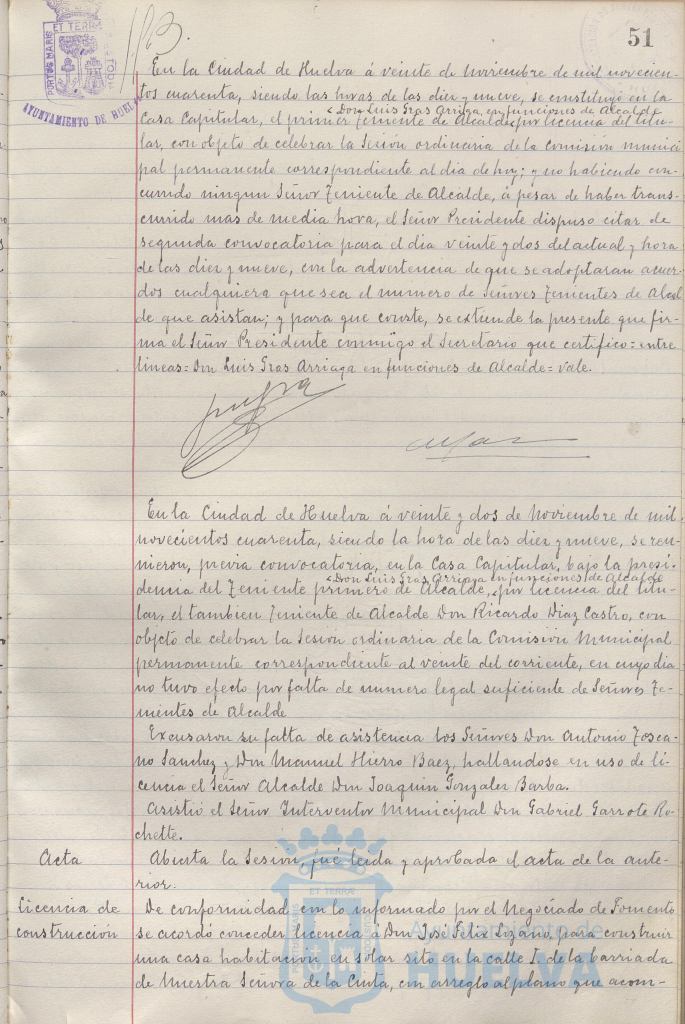 51
PORTUS MARIS ET TERRAE CUSTODIA
AYUNTAMIENTO DE HUELVA
En la Ciudad de Huelva á veinte de Noviembre de mil novecien-
tos cuarenta, siendo las horas de las diez y nueve, se constituyó en la
Casa Capitular, el primer Teniente de Alcalde, <Don Luis Gras Arriaga, en funciones de Alcalde por licencia del titu-
lar, con objeto de celebrar la Sesión ordinaria de la Comisión munici
pal permanente correspondiente al dia de hoy; y no habiendo con-
currido ningun Señor Teniente de Alcalde, á pesar de haber trans-
currido mas de media hora, el Señor Presidente dispuso citar de
segunda convocatoria para el dia veinte y dos del actual y hora
de las diez y nueve, con la advertencia de que se adoptaran acuer-
dos cualquiera que sea el numero de Señores Tenientes de Alcal
de que asistan; y para que conste, se extiende la presente que fir-
ma el Señor Presidente conmigo el Secretario que certifico = entre
lineas = Don Luis Gras Arriaga en funciones de Alcalde = vale.
En la Ciudad de Huelva á veinte y dos de Noviembre de mil
novecientos cuarenta, siendo la hora de las diez y nueve, se reu-
nieron, previa convocatoria, en la Casa Capitular, bajo la presi-
dencia del Teniente primero de Alcalde, <Don Luis Gras Arriaga en funciones de Alcalde por licencia del titu-
lar, el tambien Teniente de Alcalde Don Ricardo Diaz Castro, con
objeto de celebrar la Sesión ordinaria de la Comisión Municipal
permanente correspondiente al veinte del corriente, en cuyo dia
no tuvo efecto por falta de numero legal suficiente de Señores Te-
nientes de Alcalde
Excusaron su falta de asistencia los Señores Don Antonio Tosca-
no Sanchez y Don Manuel Hierro Baez, hallandose en uso de li-
cencia el Señor Alcalde Don Joaquin Gonzalez Barba.
Asistió el Señor Interventor Municipal Don Gabriel Garrote Ro-
chette.
Acta
Abierta la Sesión, fué leida y aprobada el acta de la ante-
rior.
Licencia de
construcción
De conformidad con lo informado por el Negociado de Fomento
se acordó conceder licencia á Don José Felix Lozano, para construir
una casa habitación en solar sito en la calle I de la barriada
de Nuestra Señora de la Cinta, con arreglo al plano que acom-
Ayuntamiento de
HUELVA